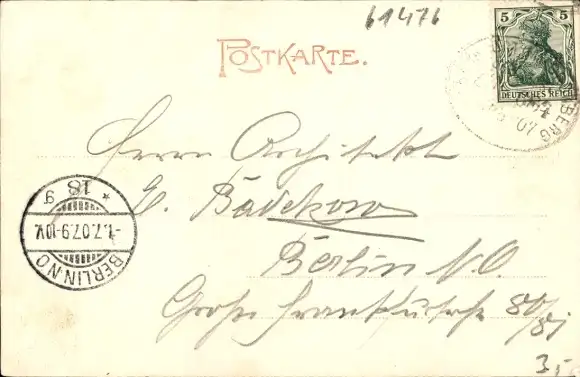 61476
POSTKARTE.
5 5
DEUTSCHES REICH
BERG
07
Herrn Architekt
E. Badekow
Berlin N.O.
Große Frankfurterstr 80/81
BERLIN NO
-1.7.07.9-10V.
* 18 g
3,5